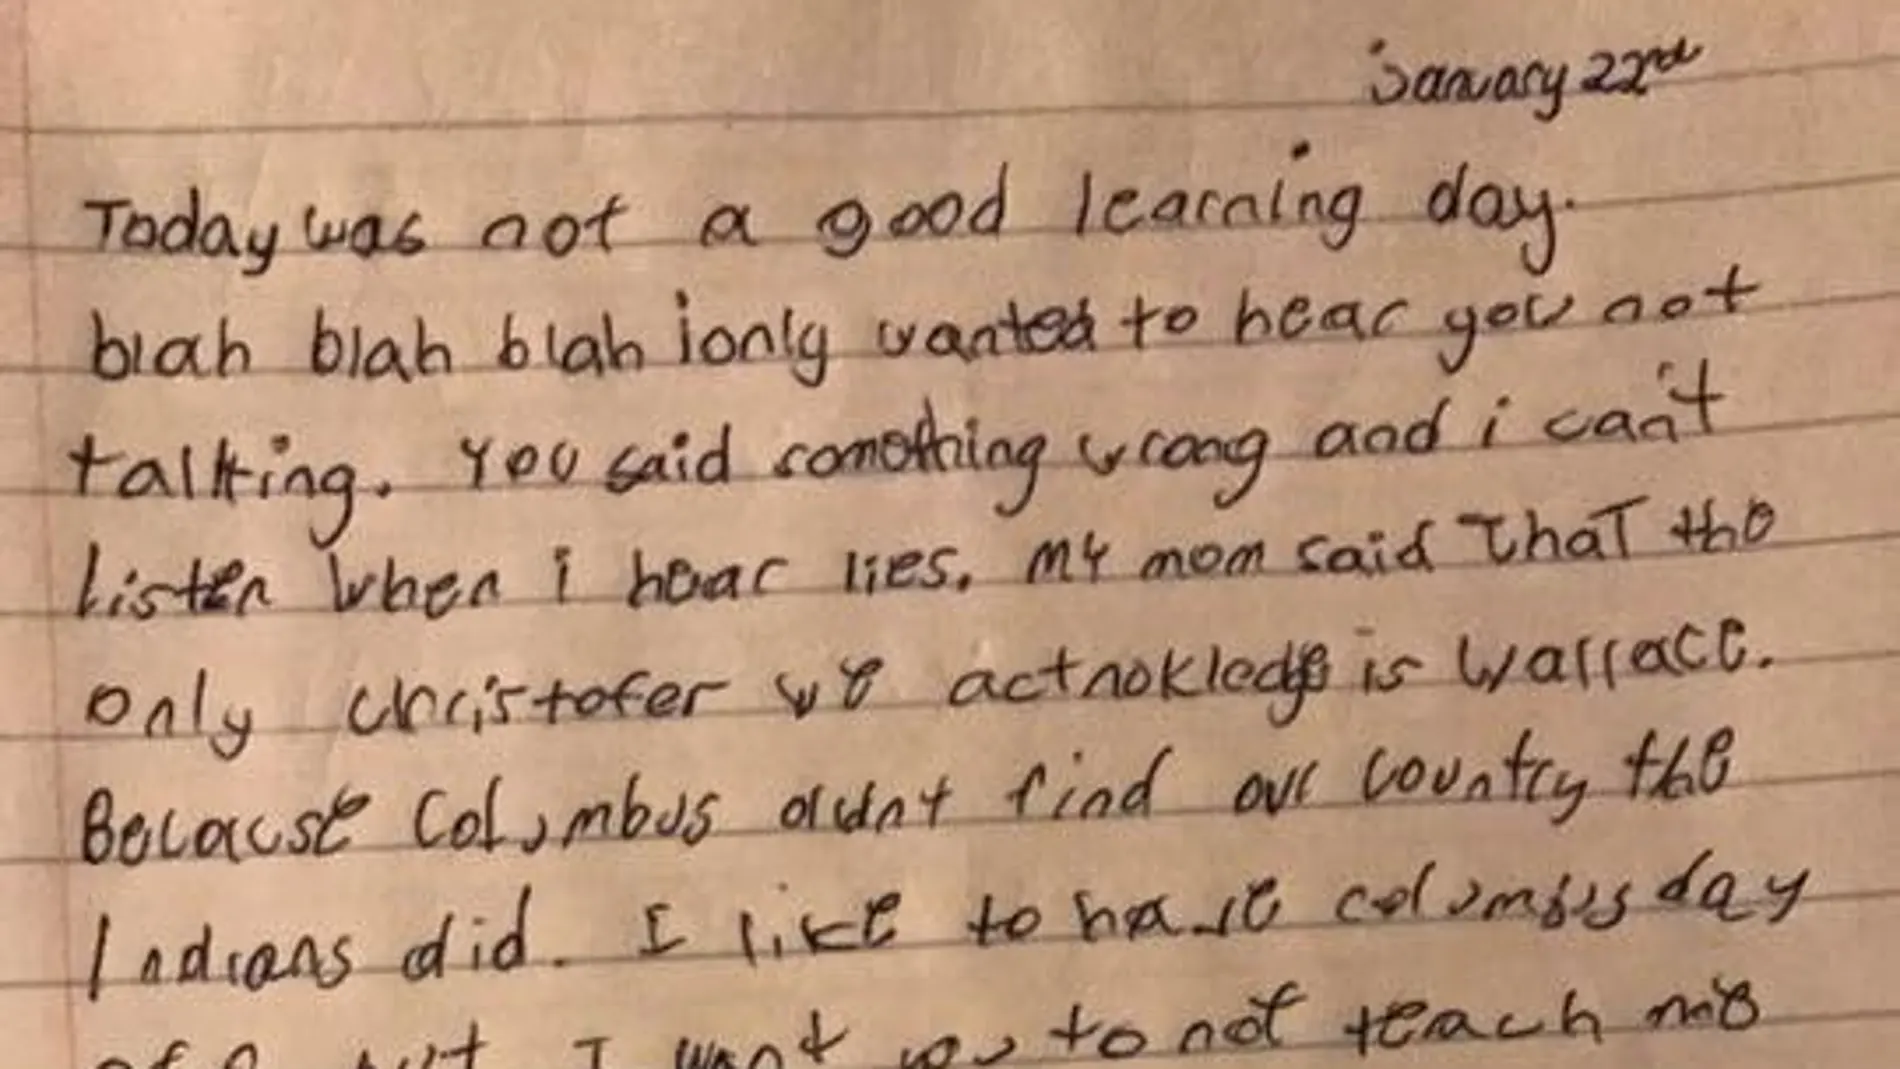 january 22nd
Today was not a good learning day.
blah blah blah i only wanted to hear you not
talking. You said something wrong and i can't
listen when i hear lies. My mom said that the
only christofer we actnokledge is Wallace.
Because Columbus didnt find our country the
Indians did. I like to have columbus day
off but I want you to not teach me